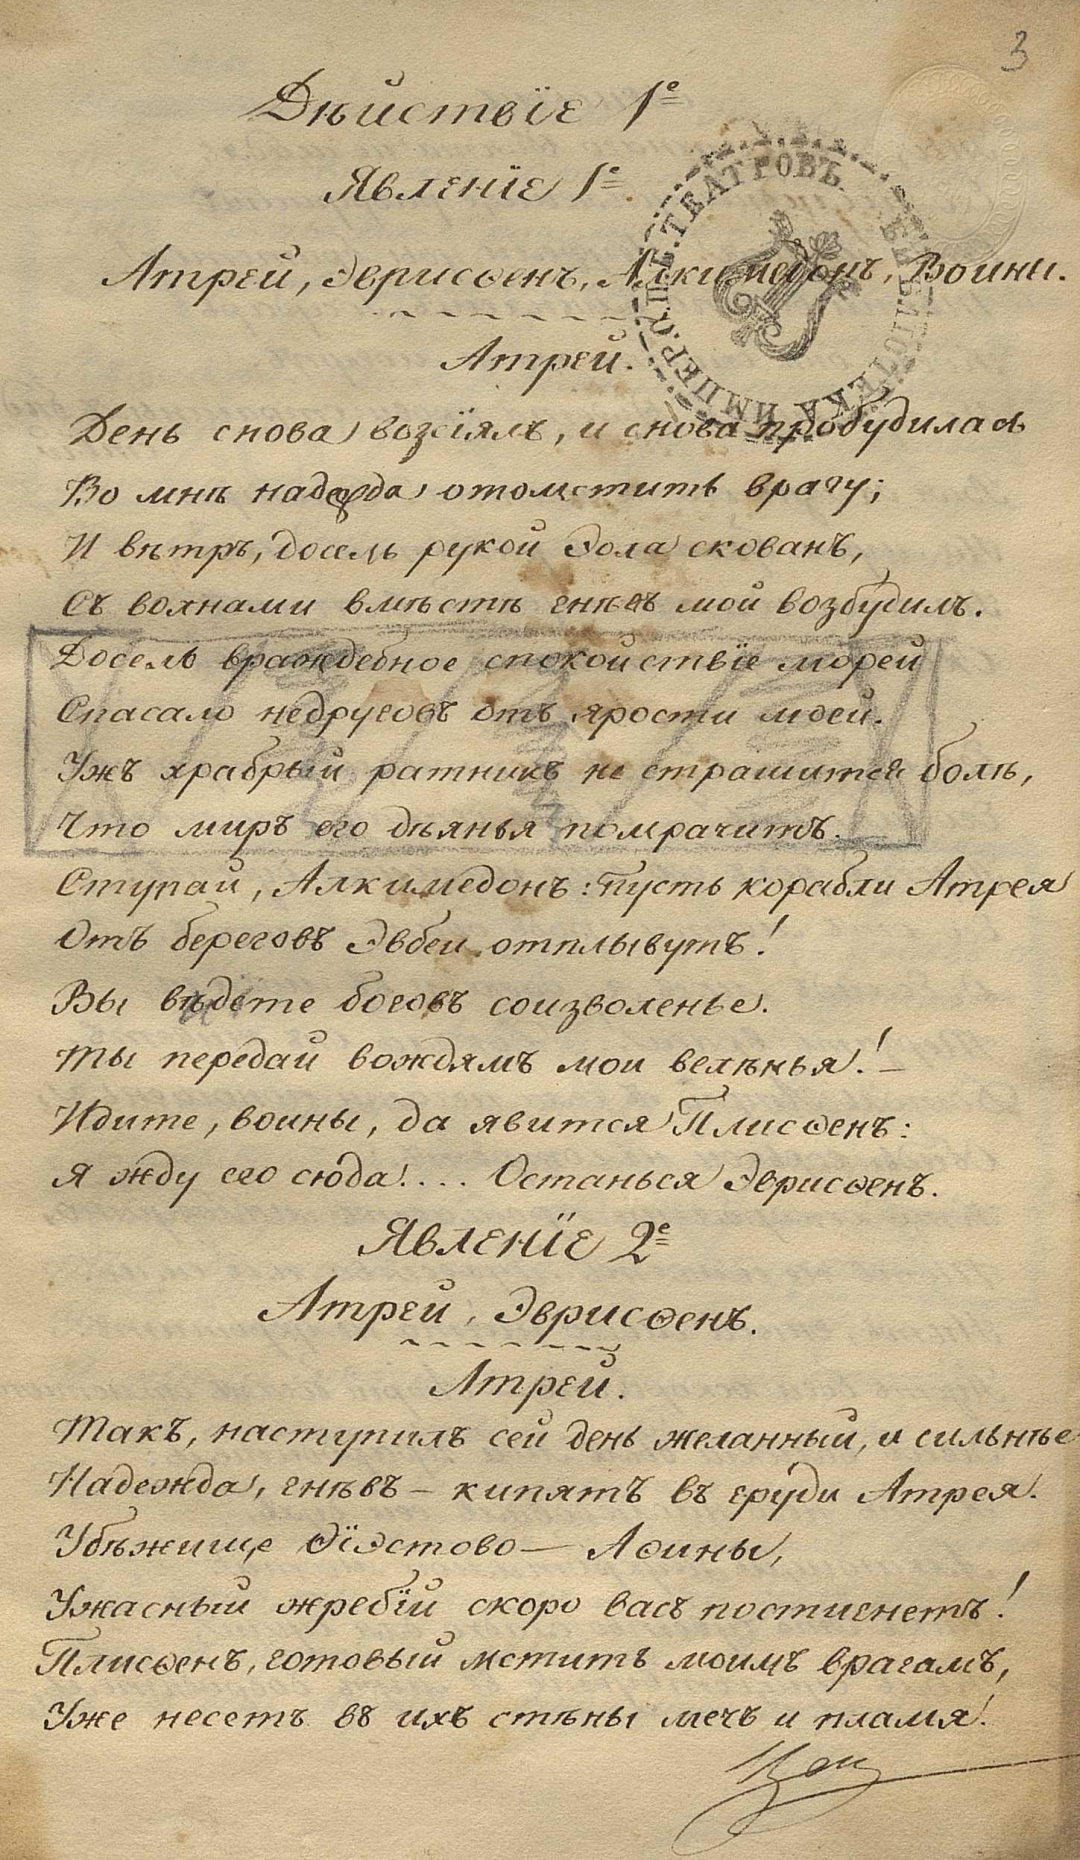 3
Дѣйствїе 1е
Явленїе 1е.
БИБЛІОТЕКА ИМПЕР. С.П.Б. ТЕАТРОВЪ
Атрей, Эврисѳенъ, Алкимедонъ, Воины.
Атрей.
День снова возсїялъ, и снова пробудилась
Во мнѣ надежда отомстить врагу;
И вѣтръ, досель рукой Эола скованъ,
Съ волнами вмѣстѣ гнѣвъ мой возбудилъ.
Досель враждебное спокойствїе морей
Спасало недруговъ отъ ярости моей.
Ужъ храбрый ратникъ не страшится болѣ,
Что миръ его дѣянья помрачитъ.
Ступай, Алкимедонъ: пусть корабли Атрея
Отъ береговъ Эвбеи отплывутъ!
Вы видите боговъ соизволенье.
Ты передай вождямъ мои велѣнья! –
Идите, воины, да явится Плисѳенъ:
Я жду его сюда.... Останься Эврисѳенъ.
Явленїе 2е
Атрей, Эврисѳенъ.
Атрей.
Такъ, наступилъ сей день желанный, и сильнѣе
Надежда, гнѣвъ – кипятъ въ груди Атрея.
Убѣжище Ѳїэстово – Аѳины,
Ужасный жребїй скоро васъ постигнетъ!
Плисѳенъ, готовый мстить моимъ врагамъ,
Уже несетъ въ ихъ стѣны мечъ и пламя.